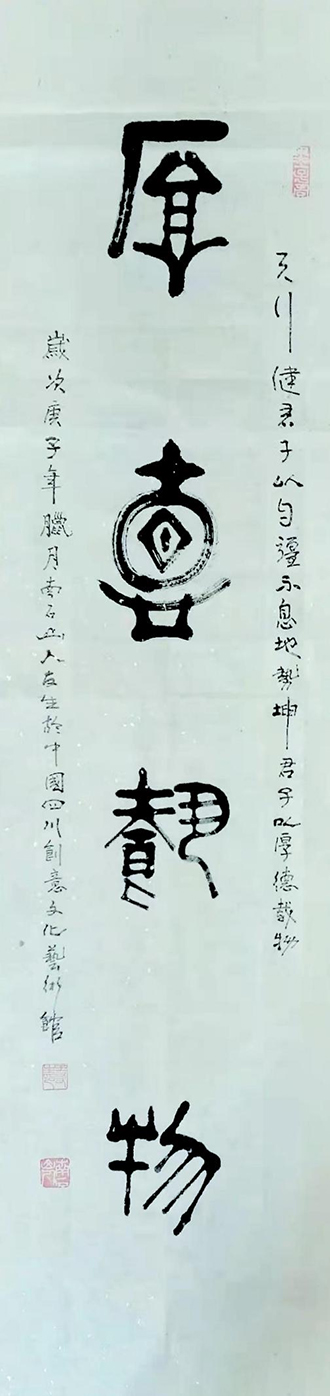 天行健君子以自彊不息地勢坤君子以厚德載物
厚德載物
歲次庚子年臘月南石山人友生於中國四川創意文化藝術館